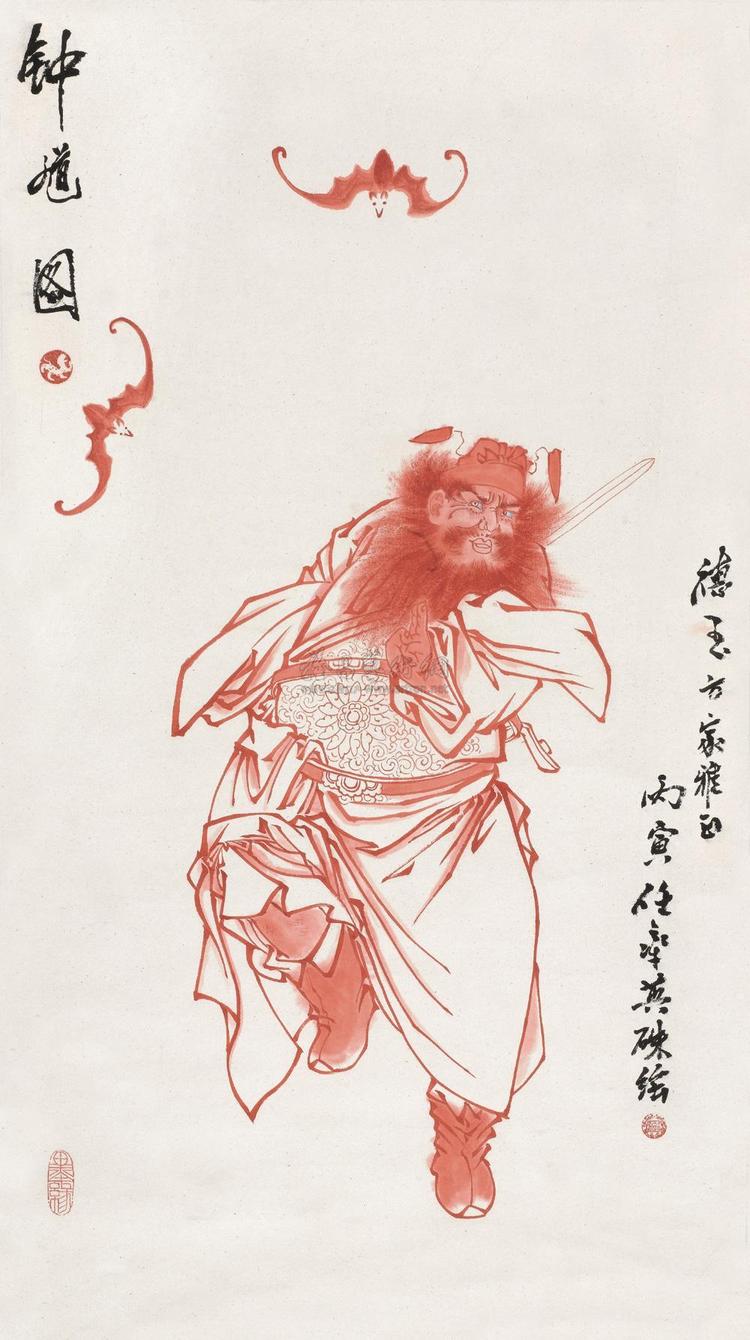 钟馗图
德玉方家雅正
丙寅任率英硃绘